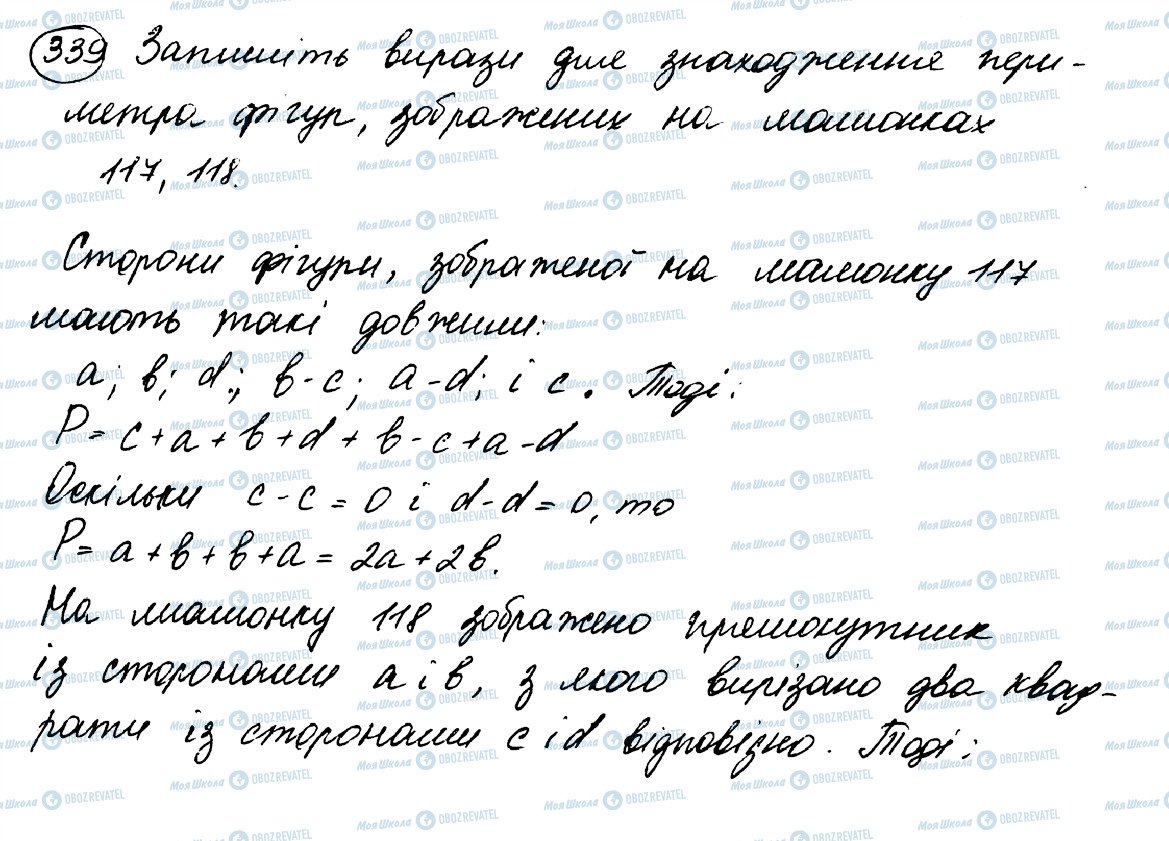 339 Запишіть вирази для знаходження пери-
метра фігур, зображених на малюнках
117, 118.
Сторони фігури, зображеної на малюнку 117
мають такі довжини:
a; b; d; b-c; a-d; і c. Тоді:
P = c+a+b+d+b-c+a-d
Оскільки c-c=0 і d-d=0, то
P = a+b+b+a = 2a+2b.
На малюнку 118 зображено прямокутник
із сторонами a і b, з якого вирізано два квад-
рати із сторонами c і d відповідно. Тоді: